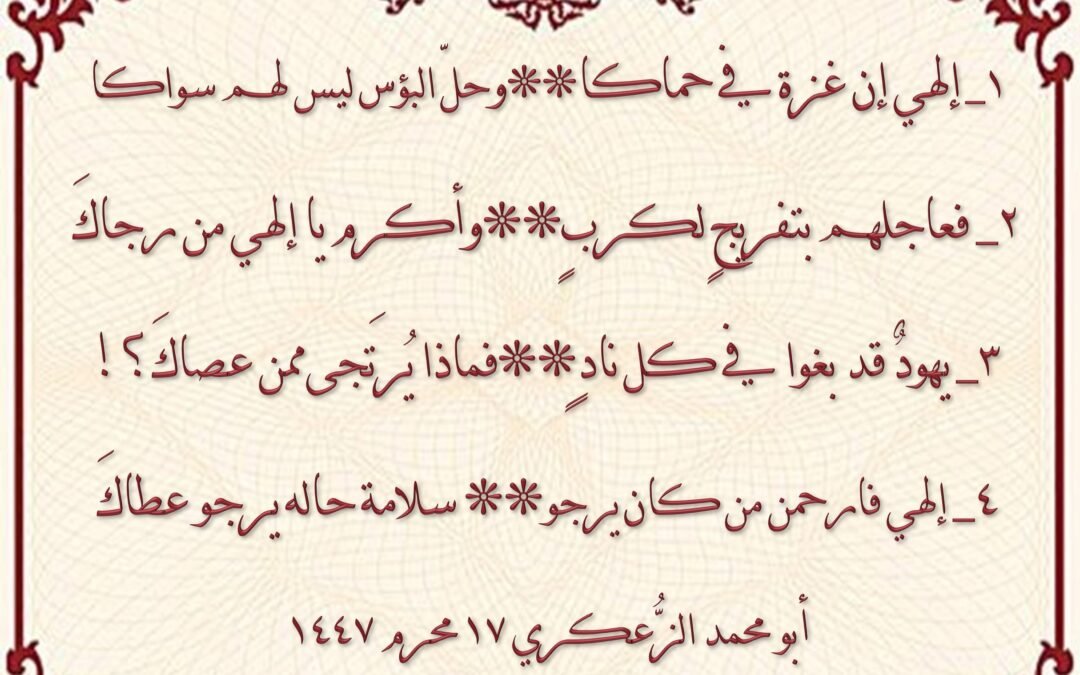 ١_إلهي إن غزة في حماكا**وحلّ البؤس ليس لهم سواكا
٢_فعاجلهم بتفريجٍ لكربٍ**وأكرم يا إلهي من رجاكَ
٣_يهودٌ قد بغوا في كل نادٍ**فماذا يُرتَجى ممن عصاكَ؟!
٤_إلهي فارحمن من كان يرجو** سلامة حاله يرجو عطاكَ
أبو محمد الزُّعكري ١٧ محرم ١٤٤٧